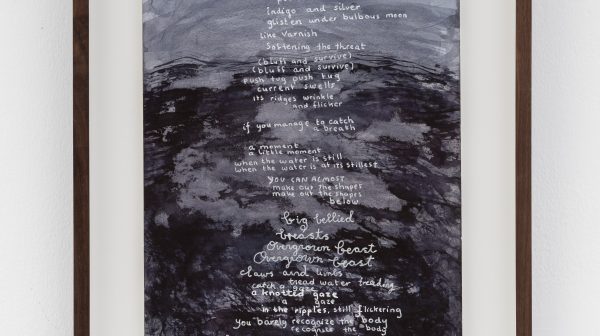 Indigo and silver
glisten under bulbous moon
like varnish
Softening the threat
(bluff and survive)
(bluff and survive)
push tug push tug
current swells
its ridges wrinkle
and flicker
if you manage to catch
a breath
a moment
a little moment
when the water is still
when the water is at its stillest
YOU CAN ALMOST
make out the shapes
make out the shapes
below
big bellied
breasts
Overgrown beast
Overgrown beast
claws and limbs
tread water treading
catch a gaze
a knotted gaze
a gaze
in the ripples, still flickering
you barely recognize the body
recognise the body